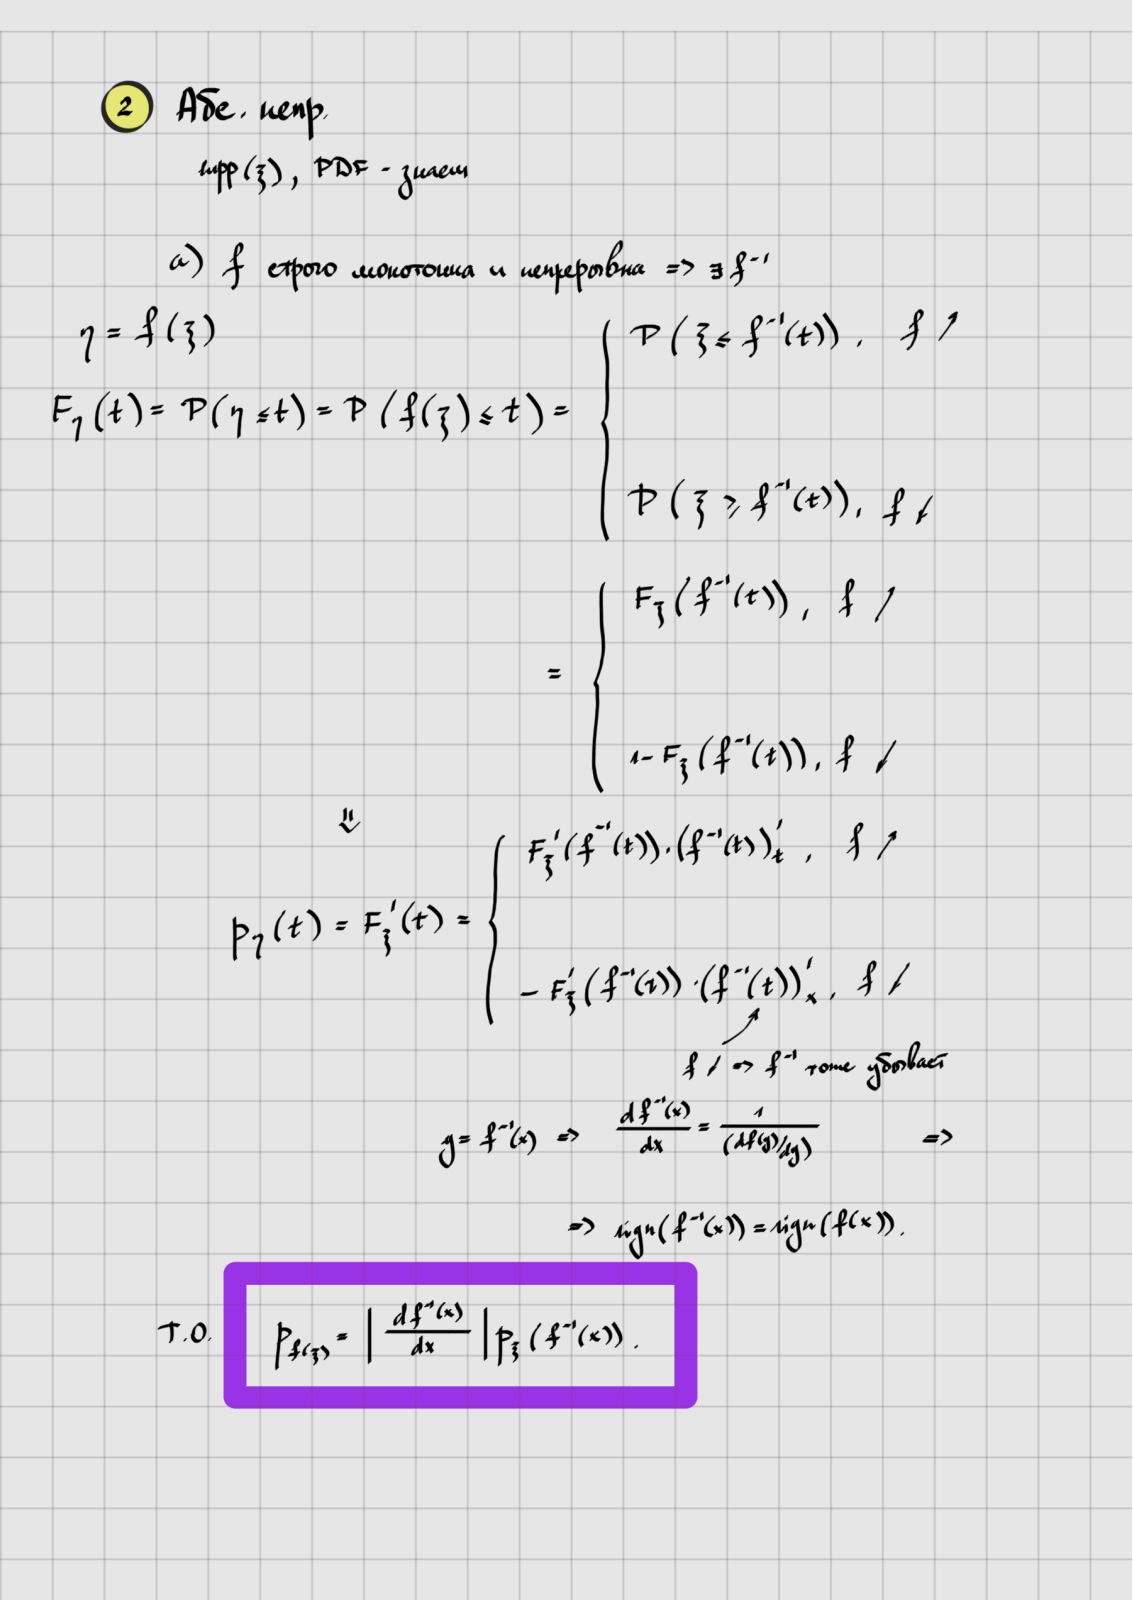 2 Абс. непр.
supp(ξ), PDF - знаем
a) f строго монотонна и непрерывна => ∃ f⁻¹
η = f(ξ)
F_η(t) = P(η ≤ t) = P(f(ξ) ≤ t) = { P(ξ ≤ f⁻¹(t)), f ↗
P(ξ ≥ f⁻¹(t)), f ↙
= { F_ξ(f⁻¹(t)), f ↗
1 - F_ξ(f⁻¹(t)), f ↙
⇓
p_η(t) = F_ξ'(t) = { F_ξ'(f⁻¹(t)) · (f⁻¹(t))'_t, f ↗
- F_ξ'(f⁻¹(t)) · (f⁻¹(t))'_x, f ↙
f ↙ => f⁻¹ тоже убывает
y = f⁻¹(x) => df⁻¹(x)/dx = 1/(df(y)/dy) =>
=> sign(f⁻¹(x)) = sign(f(x)).
Т.О. p_f(ξ) = |df⁻¹(x)/dx| p_ξ(f⁻¹(x)).